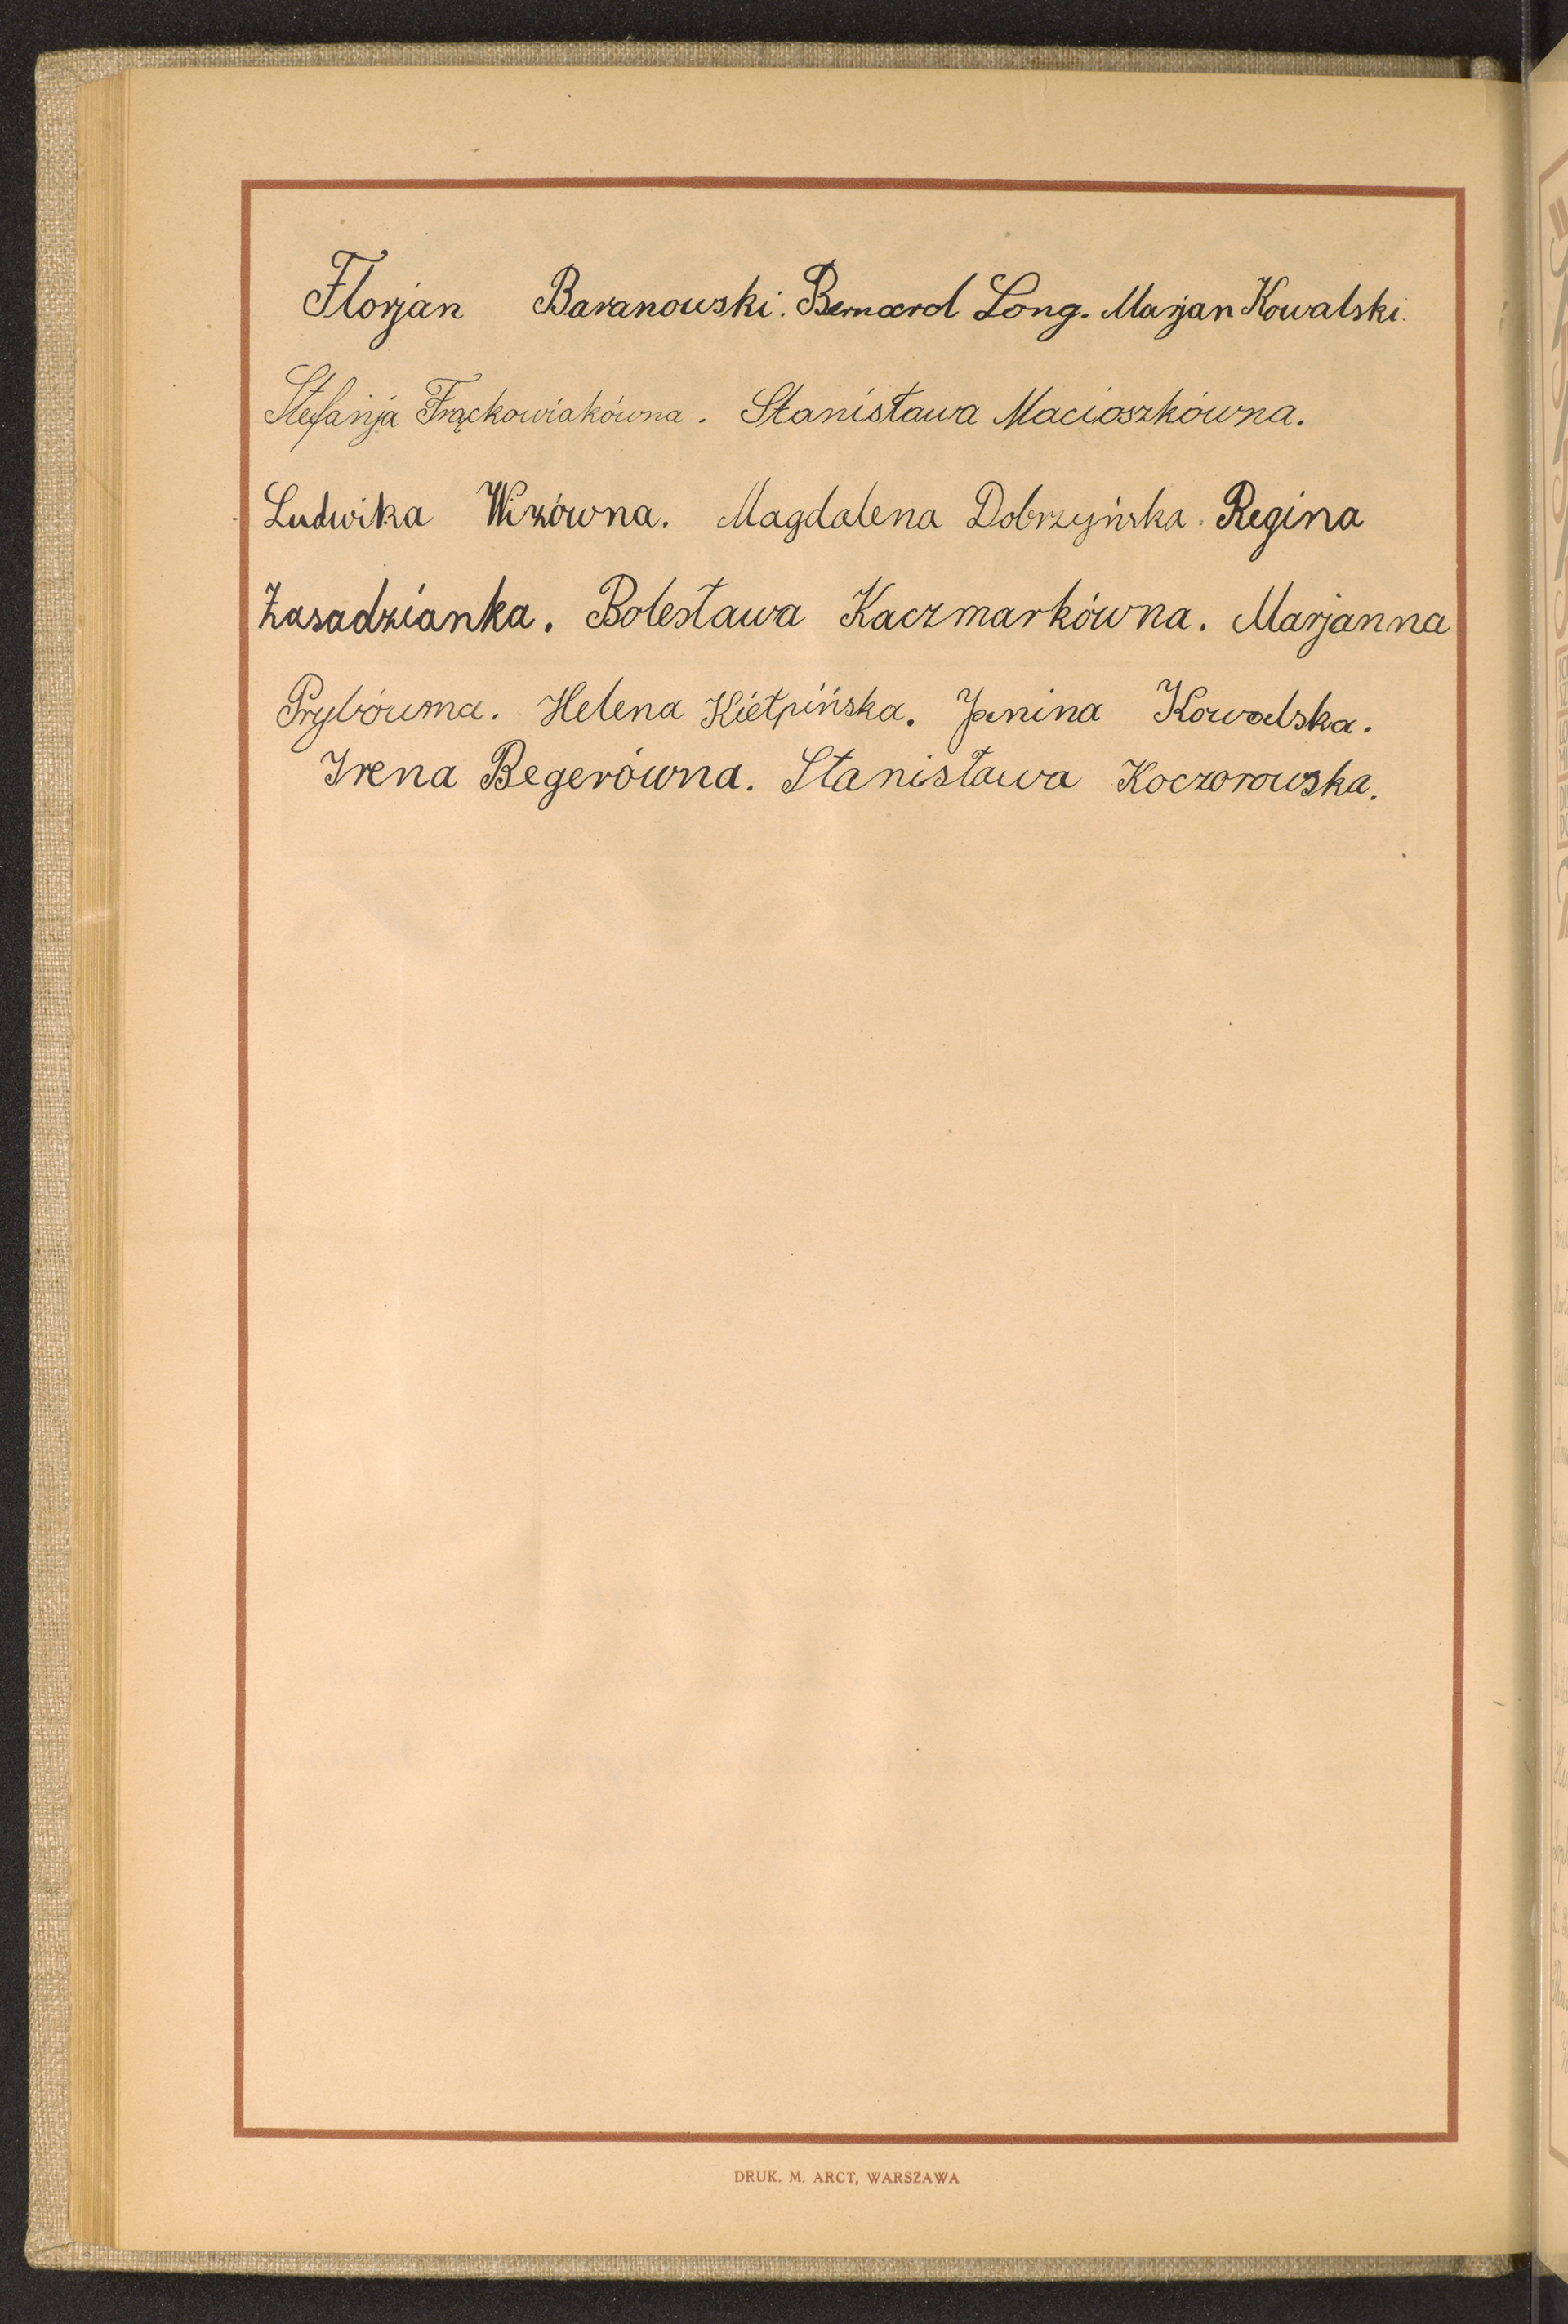 Florjan Baranowski. Bernard Long. Marjan Kowalski.
Stefanja Frąckowiakówna. Stanisława Macioszkówna.
Ludwika Wizówna. Magdalena Dobrzyńska. Regina
Zasadzianka. Bolesława Kaczmarkówna. Marjanna
Prybówna. Helena Kiełpińska. Janina Kowalska.
Irena Begerówna. Stanisława Koczorowska.
DRUK. M. ARCT, WARSZAWA